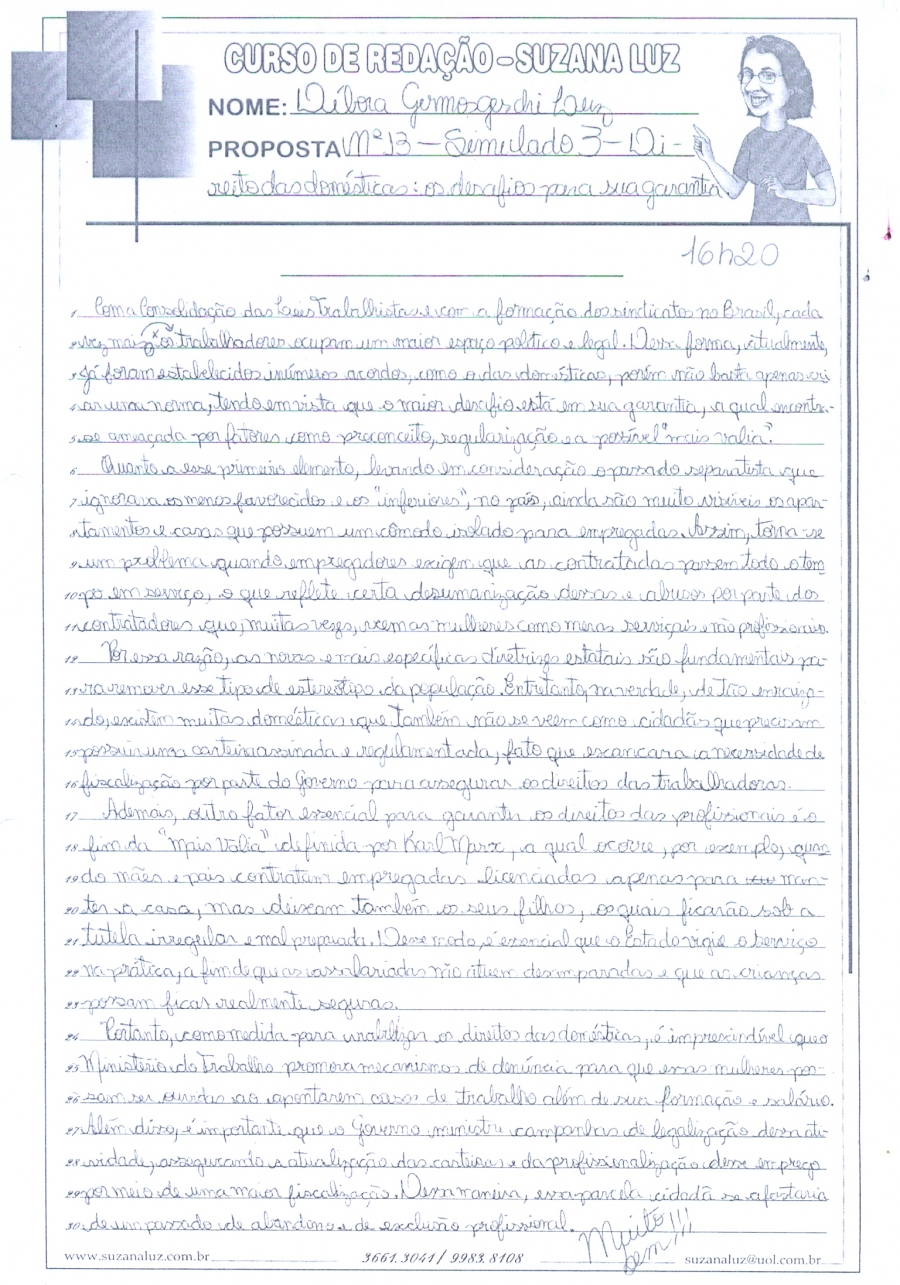 CURSO DE REDAÇÃO - SUZANA LUZ
NOME: Débora Luz
PROPOSTA Nº 13 - Simulado 3 - Di-
reito das domésticas: os desafios para sua garantia.
16h20
1 Com a Consolidação das Leis Trabalhistas e com a formação dos sindicatos no Brasil, cada
2 vez mais os trabalhadores ocupam um maior espaço político e legal. Dessa forma, atualmente,
3 já foram estabelecidos inúmeros acordos, como o das domésticas, porém não basta apenas cri
4 ar uma norma, tendo em vista que o maior desafio está em sua garantia, a qual encontra-
5 se ameaçada por fatores como preconceito, regularização e a possível "mais valia".
6 Quanto a esse primeiro elemento, levando em consideração o passado separatista que
7 ignorava os menos favorecidos e os "inferiores", no país, ainda são muito visíveis os apar-
8 tamentos e casas que possuem um cômodo isolado para empregadas. Assim, torna-se
9 um problema quando empregadores exigem que as contratadas passem todo o tem
10 po em serviço, o que reflete certa desumanização dessas e abusos por parte dos
11 contratadores que, muitas vezes, veem as mulheres como meras serviçais e não profissionais.
12 Por essa razão, as novas e mais específicas diretrizes estatais são fundamentais pa-
13 ra remover esse tipo de estereótipo da população. Entretanto, na verdade, de tão enraiza-
14 do, existem muitas domésticas que também não se veem como cidadãs que precisam
15 possuir uma carteira assinada e regulamentada, fato que escancara a necessidade de
16 fiscalização por parte do Governo para assegurar os direitos das trabalhadoras.
17 Ademais, outro fator essencial para garantir os direitos das profissionais é o
18 fim da "Mais Valia" definida por Karl Marx, a qual ocorre, por exemplo, quan
19 do mães e pais contratam empregadas licenciadas apenas para man-
20 ter a casa, mas deixam também os seus filhos, os quais ficarão sob a
21 tutela irregular e mal preparada. Desse modo, é essencial que o Estado vigie o serviço
22 na prática, a fim de que as assalariadas não atuem desamparadas e que as crianças
23 possam ficar realmente seguras.
24 Portanto, como medida para viabilizar os direitos das domésticas, é imprescindível que o
25 Ministério do Trabalho promova mecanismos de denúncia para que essas mulheres pos-
26 sam ser ouvidas ao apontarem casos de trabalho além de sua formação e salário.
27 Além disso, é importante que o Governo ministre campanhas de legalização dessa ati-
28 vidade, assegurando a atualização das carteiras e da profissionalização desse emprego
29 por meio de uma maior fiscalização. Dessa maneira, essa parcela cidadã se afastaria
30 de um passado de abandono e de exclusão profissional.
Muito
bem!!!
www.suzanaluz.com.br
3661.3041 / 9983.8108
suzanaluz@uol.com.br